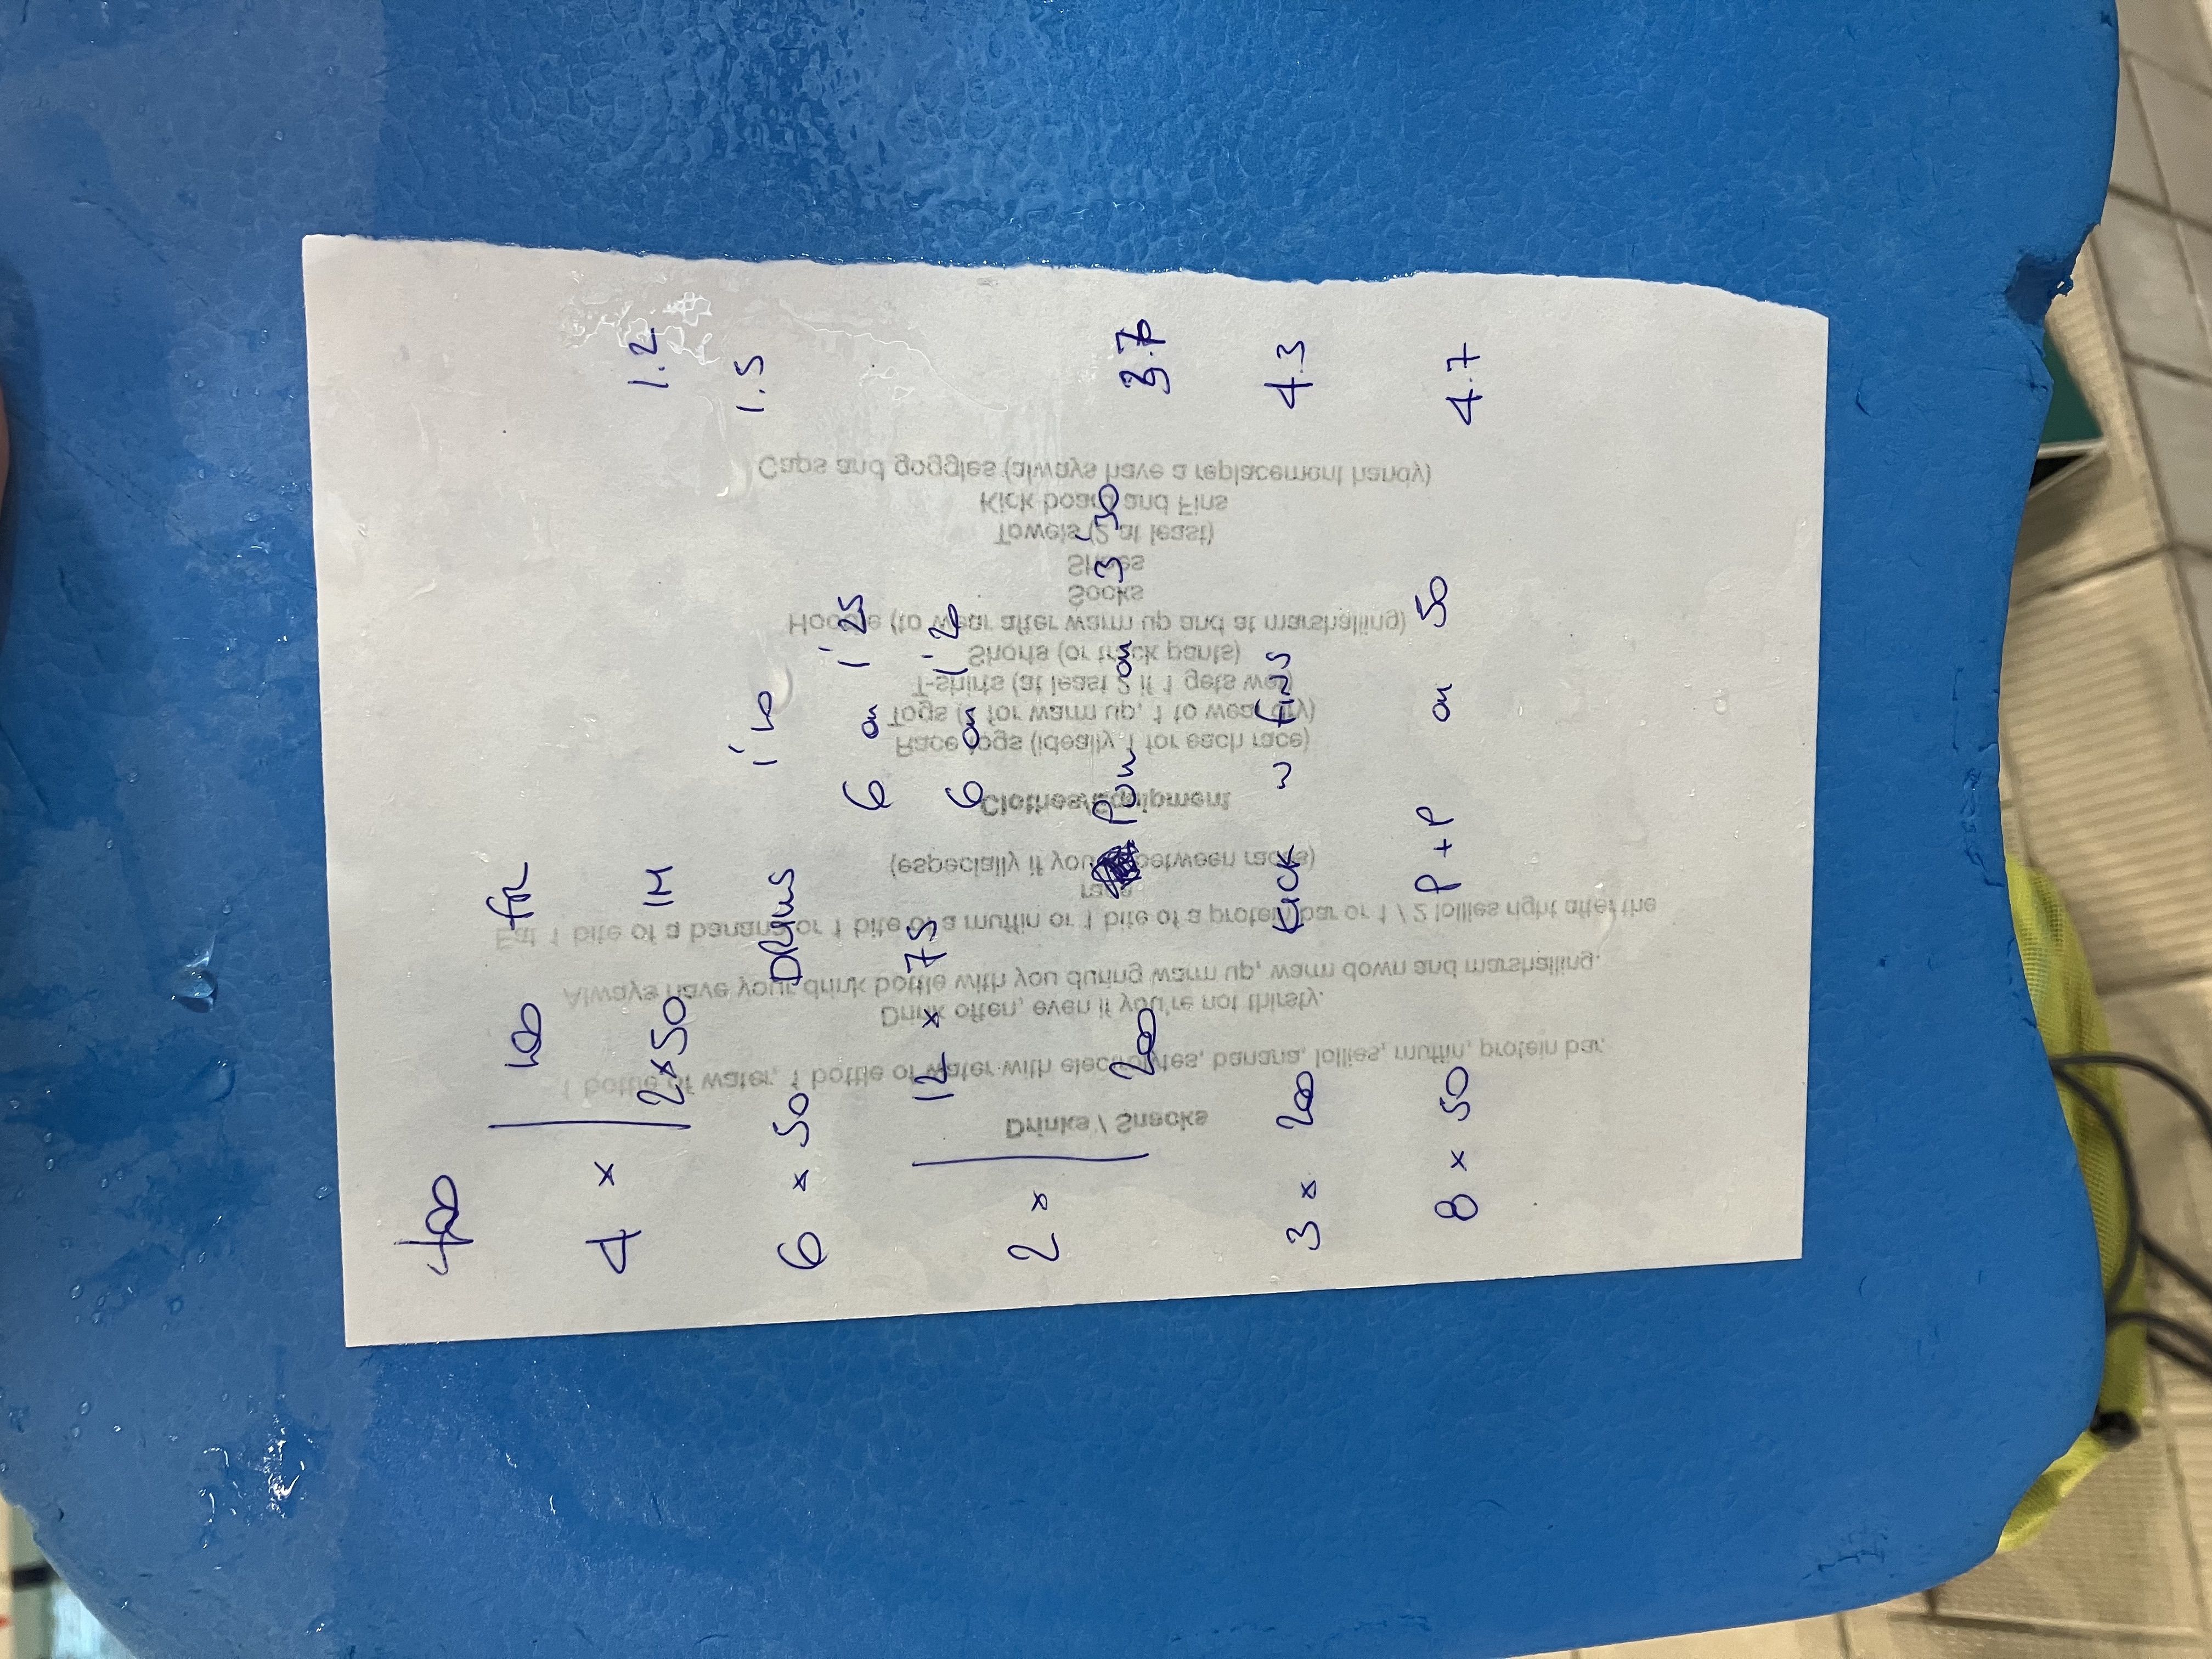 400
100 FR
4 ×
2×50 IM 1.2
6 × 50 DRILLS 1'10 1.5
6 on 1'25
12 × 75
6 on 1'20
2 ×
200 Pull on 3'30 3.7
3 × 200 KICK w FINS 4.3
8 × 50 P+P on 50 4.7
Drinks / Snacks
1 bottle of water, 1 bottle of water with electrolytes, banana, lollies, muffin, protein bar.
Drink often, even if you're not thirsty.
Always have your drink bottle with you during warm up, warm down and marshalling.
Eat 1 bite of a banana or 1 bite of a muffin or 1 bite of a protein bar or 1 / 2 lollies right after the
race
(especially if you between races)
Clothes/equipment
Race togs (ideally 1 for each race)
Togs (1 for warm up, 1 to wear dry)
T-shirts (at least 2 if 1 gets wet)
Shorts (or track pants)
Hoodie (to wear after warm up and at marshalling)
Socks
Slides
Towels (2 at least)
Kick board and Fins
Caps and goggles (always have a replacement handy)